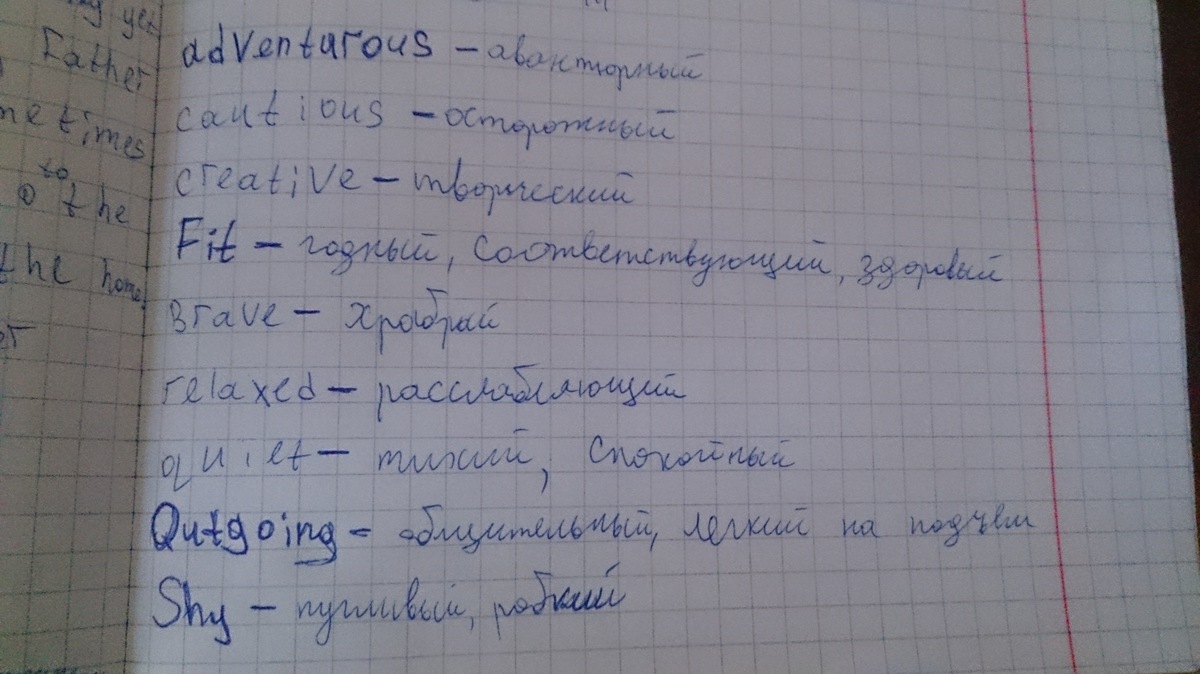 ny yet
Father
metimes
to
o the
the home.
adventurous – авантюрный
cautious – осторожный
creative – творческий
Fit – годный, соответствующий, здоровый
Brave – храбрый
relaxed – расслабляющий
quiet – тихий, спокойный
Outgoing – общительный, легкий на подъем
Shy – пугливый, робкий